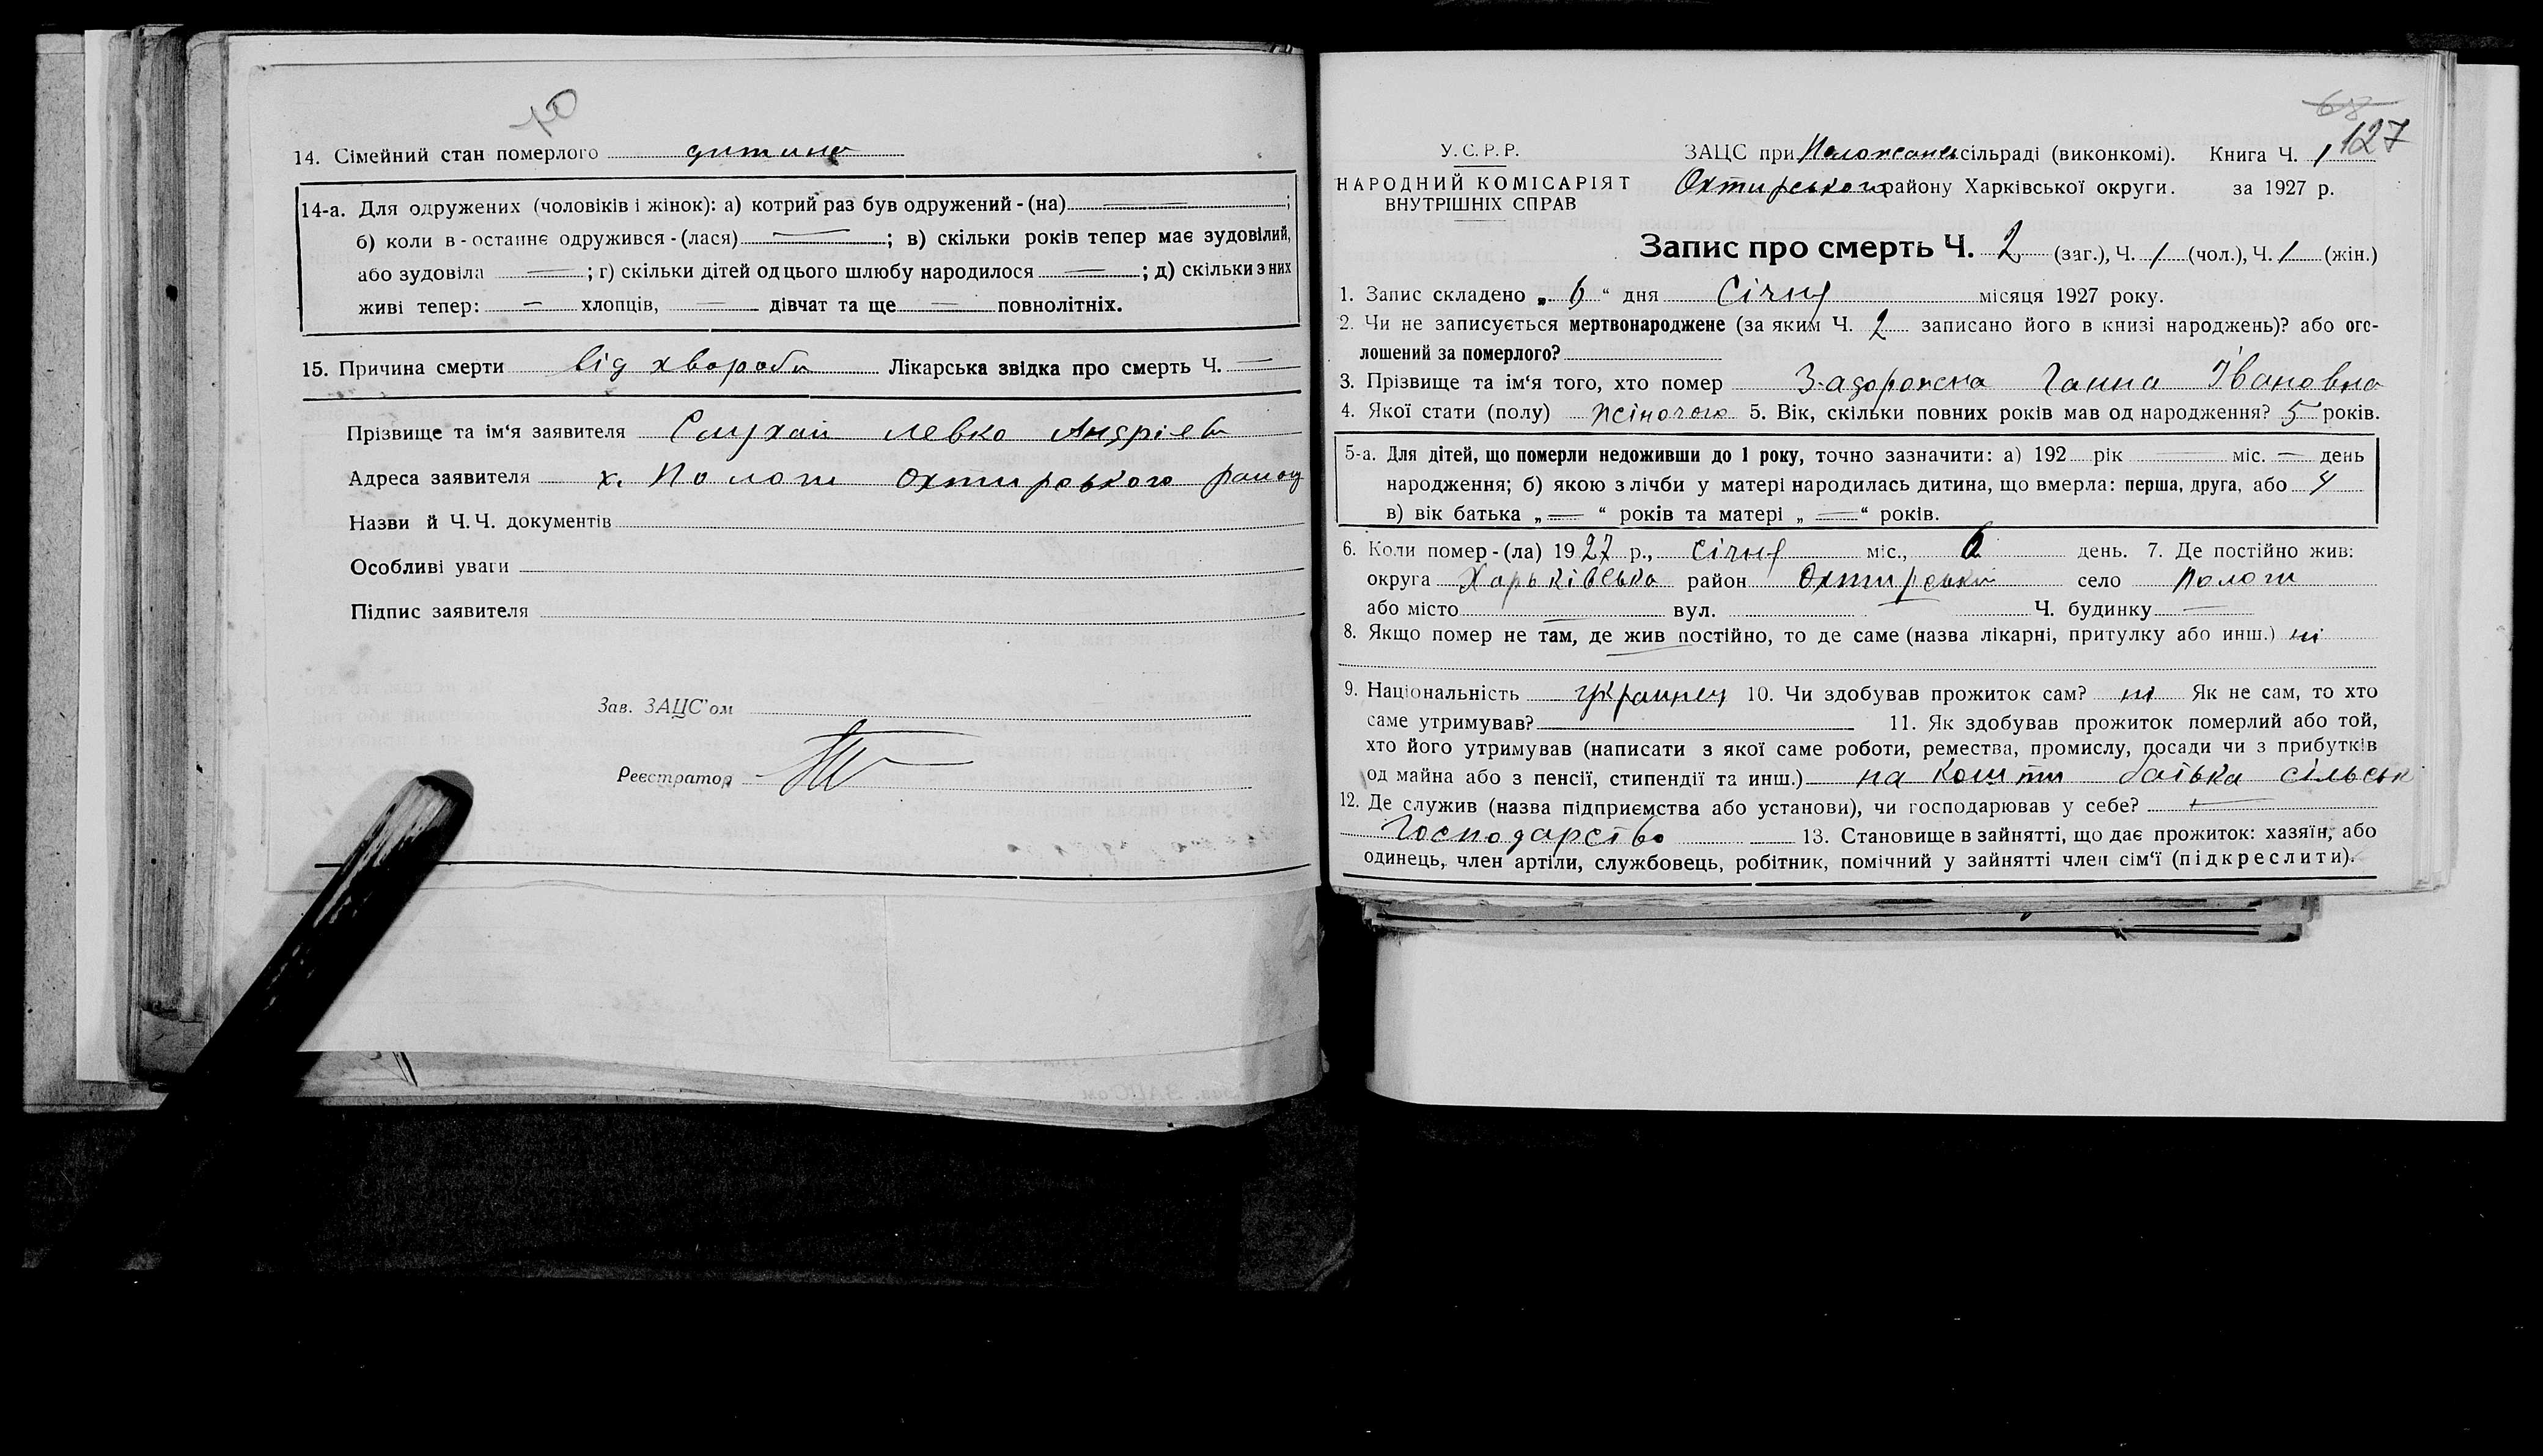 70
14. Сімейний стан померлого дитина
14-а. Для одружених (чоловіків і жінок): а) котрий раз був одружений - (на) ;
б) коли в-останнє одружився - (лася) ; в) скільки років тепер має зудовілий,
або зудовіла ; г) скільки дітей од цього шлюбу народилося ; д) скільки з них
живі тепер: хлопців, дівчат та ще повнолітніх.
15. Причина смерти від хвороби Лікарська звідка про смерть Ч. —
Прізвище та ім'я заявителя Слухай Левко Андріев
Адреса заявителя х. Пологи Охтирського району
Назви й Ч.Ч. документів
Особливі уваги
Підпис заявителя
Зав. ЗАЦС'ом
Реєстратор
68
127
У.С.Р.Р.
НАРОДНИЙ КОМІСАРІЯТ
ВНУТРІШНІХ СПРАВ
ЗАЦС при сільраді (виконкомі). Книга Ч. 1
Охтирського району Харківської округи. за 1927 р.
Запис про смерть Ч. 2 (заг.), Ч. 1 (чол.), Ч. 1 (жін.)
1. Запис складено „ 6 “ дня Січня місяця 1927 року.
2. Чи не записується мертвонароджене (за яким Ч. 2 записано його в книзі народжень)? або ого-
лошений за померлого?
3. Прізвище та ім'я того, хто помер Задорожна Ганна Івановна
4. Якої стати (полу) жіночого 5. Вік, скільки повних років мав од народження? 5 років.
5-а. Для дітей, що померли недоживши до 1 року, точно зазначити: а) 192 рік — міс. — день
народження; б) якою з лічби у матері народилась дитина, що вмерла: перша, друга, або 4
в) вік батька „ — “ років та матері „ — “ років.
6. Коли помер - (ла) 1927 р., січня міс., 6 день. 7. Де постійно жив:
округа Харьківська район Охтирський село Пологи
або місто вул. — Ч. будинку —
8. Якщо помер не там, де жив постійно, то де саме (назва лікарні, притулку або инш.) ні
9. Національність українец 10. Чи здобував прожиток сам? ні Як не сам, то хто
саме утримував? 11. Як здобував прожиток померлий або той,
хто його утримував (написати з якої саме роботи, ремества, промислу, посади чи з прибутків
од майна або з пенсії, стипендії та инш.) на кошти батька сільськ
12. Де служив (назва підприємства або установи), чи господарював у себе? —
Господарство 13. Становище в зайнятті, що дає прожиток: хазяїн, або
одинець, член артіли, службовець, робітник, помічний у зайнятті член сім'ї (підкреслити).